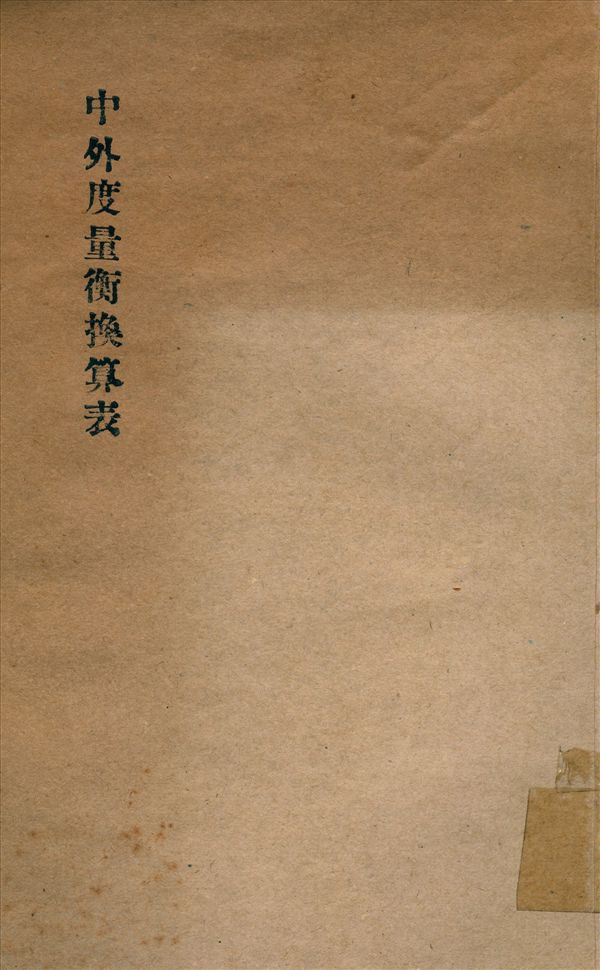 中外度量衡換算表